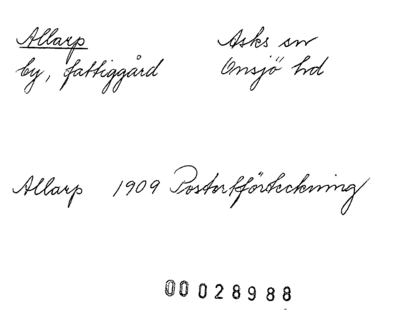 Allarp Asks sn
by, fattiggård Onsjö hd
Allarp 1909 Postortförteckning
00028988